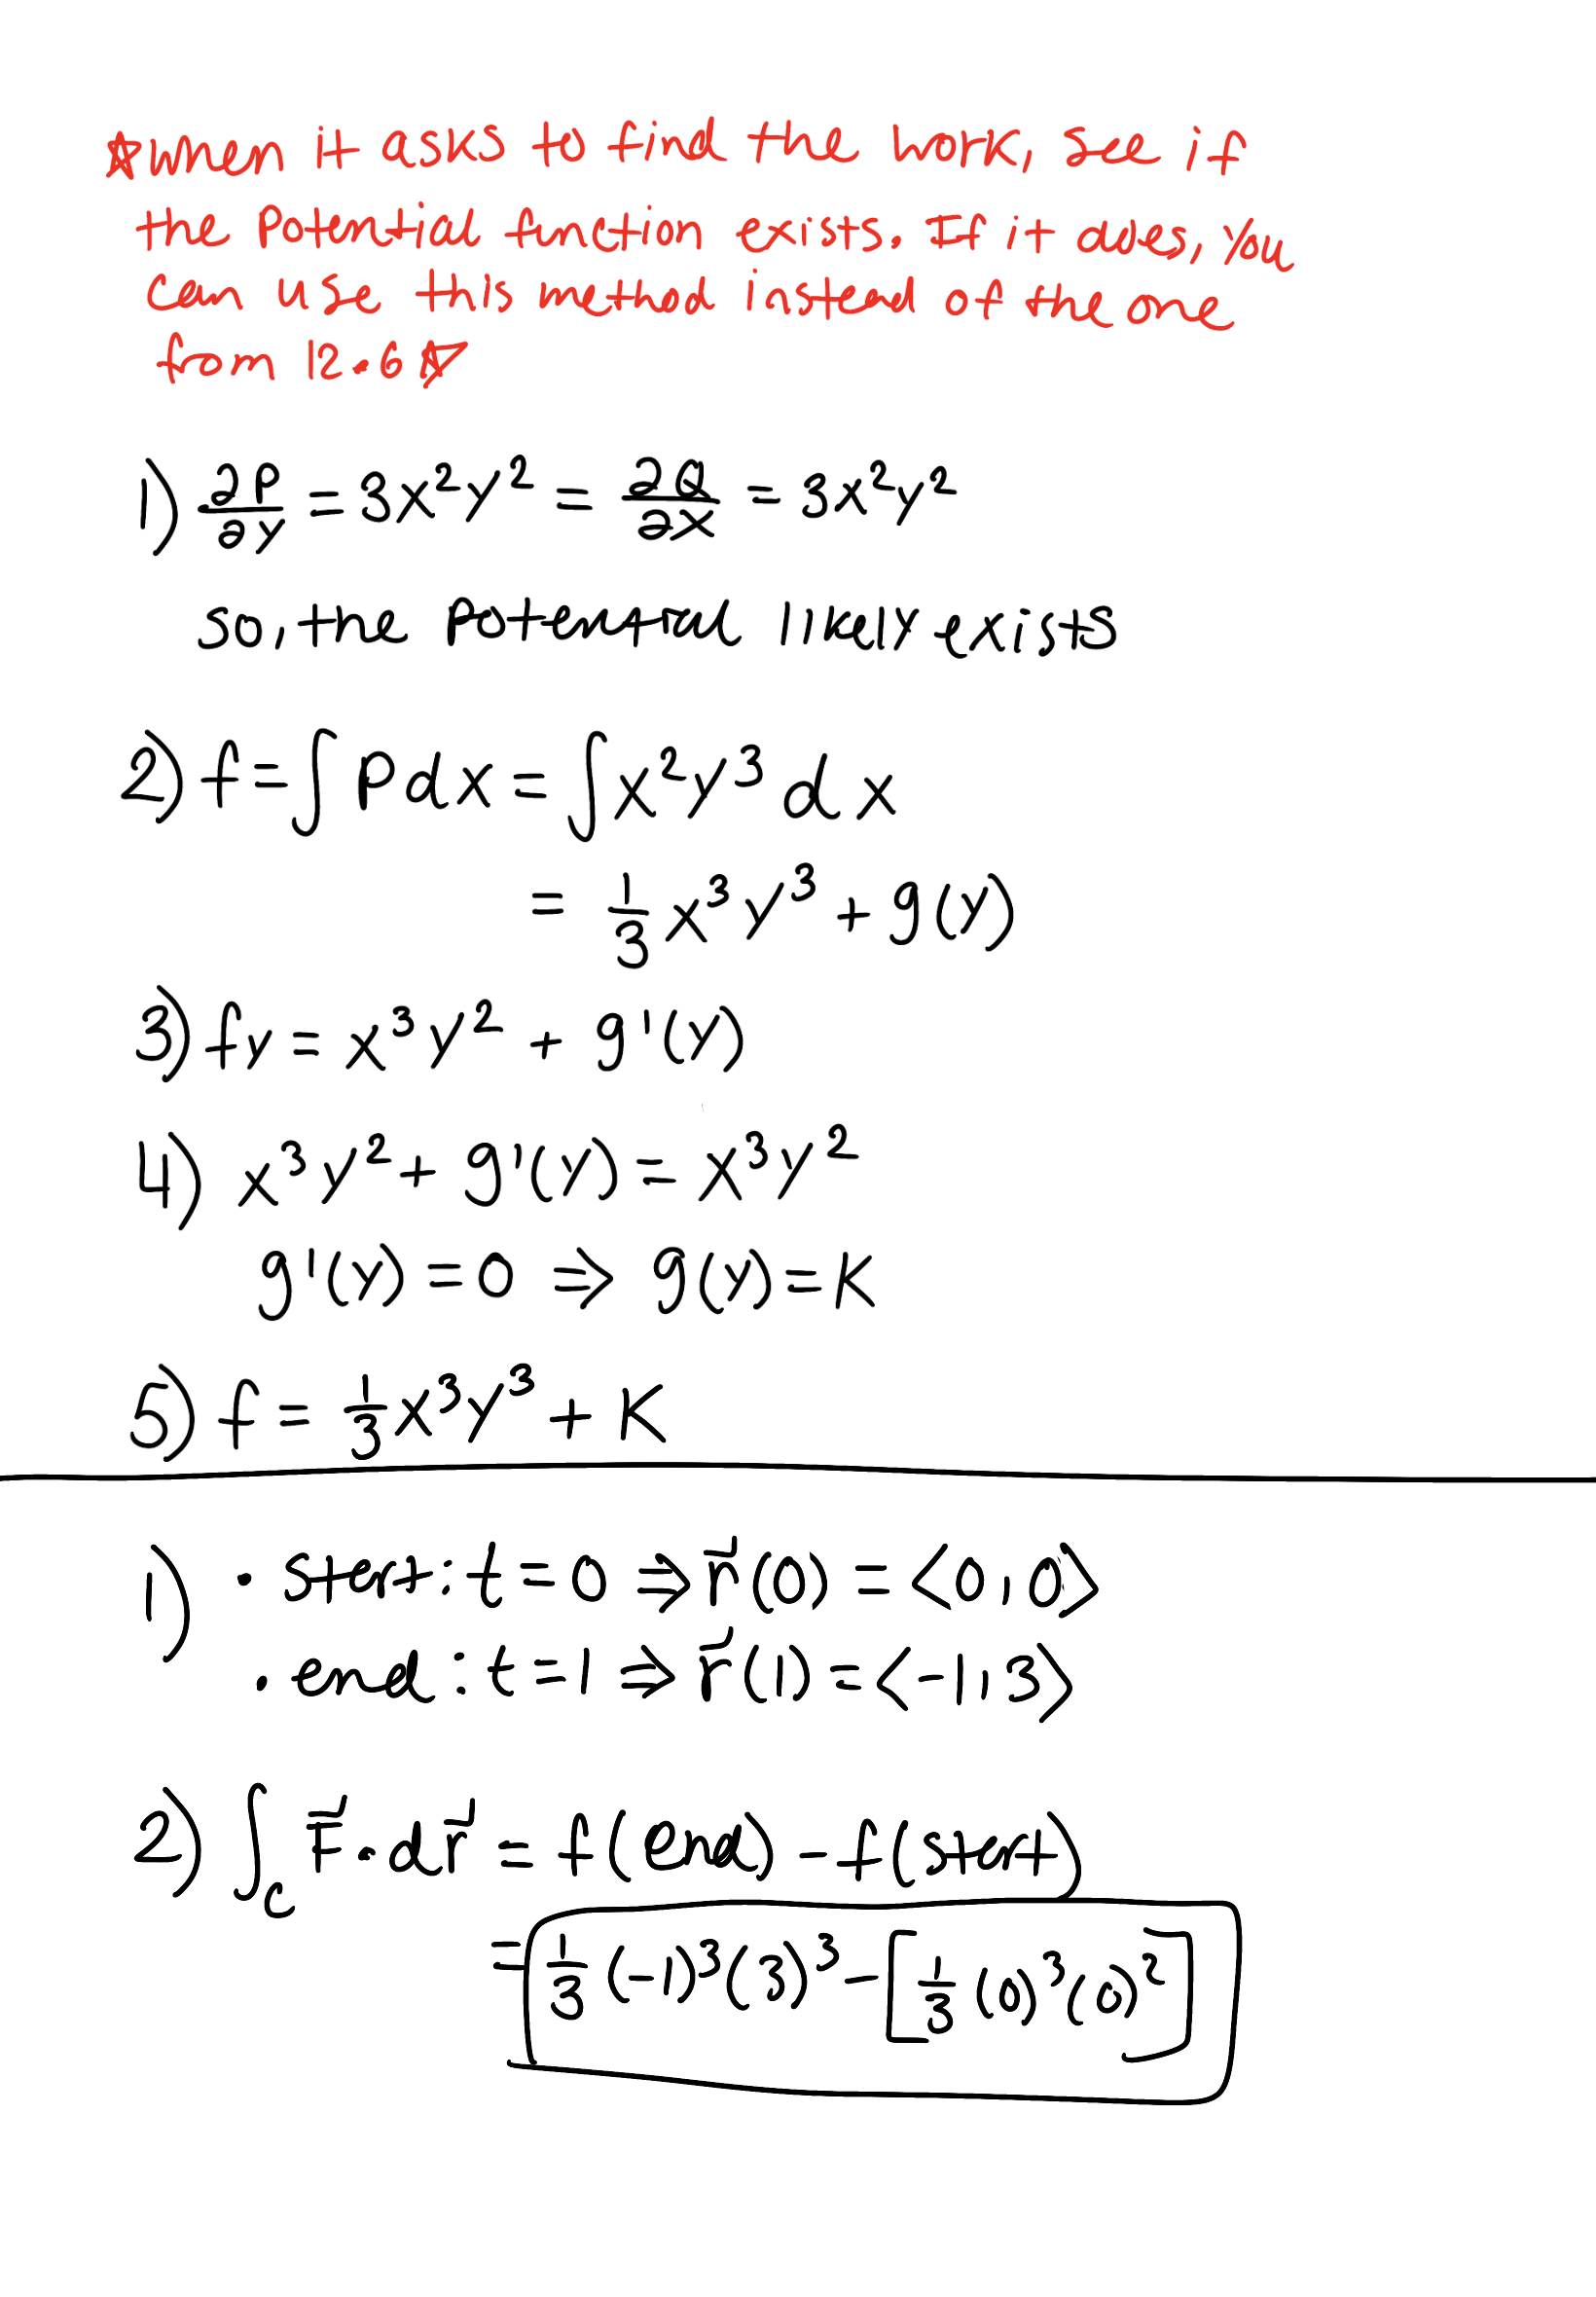 ☆When it asks to find the work, see if
the Potential function exists. If it does, you
can use this method instead of the one
from 12.6☆
1) ∂P/∂y = 3x²y² = ∂Q/∂x = 3x²y²
so, the potential likely exists
2) f=∫Pdx=∫x²y³dx
= 1/3 x³y³+g(y)
3) fy = x³y² + g'(y)
4) x³y²+g'(y)=x³y²
g'(y)=0 ⇒ g(y)=K
5) f = 1/3 x³y³ + K
1) • start: t=0 ⇒ r⃗(0) = <0,0>
• end: t=1 ⇒ r⃗(1)=<-1,3>
2) ∫_C F⃗·dr⃗ = f(end) - f(start)
= 1/3 (-1)³(3)³ - [1/3 (0)³(0)²]